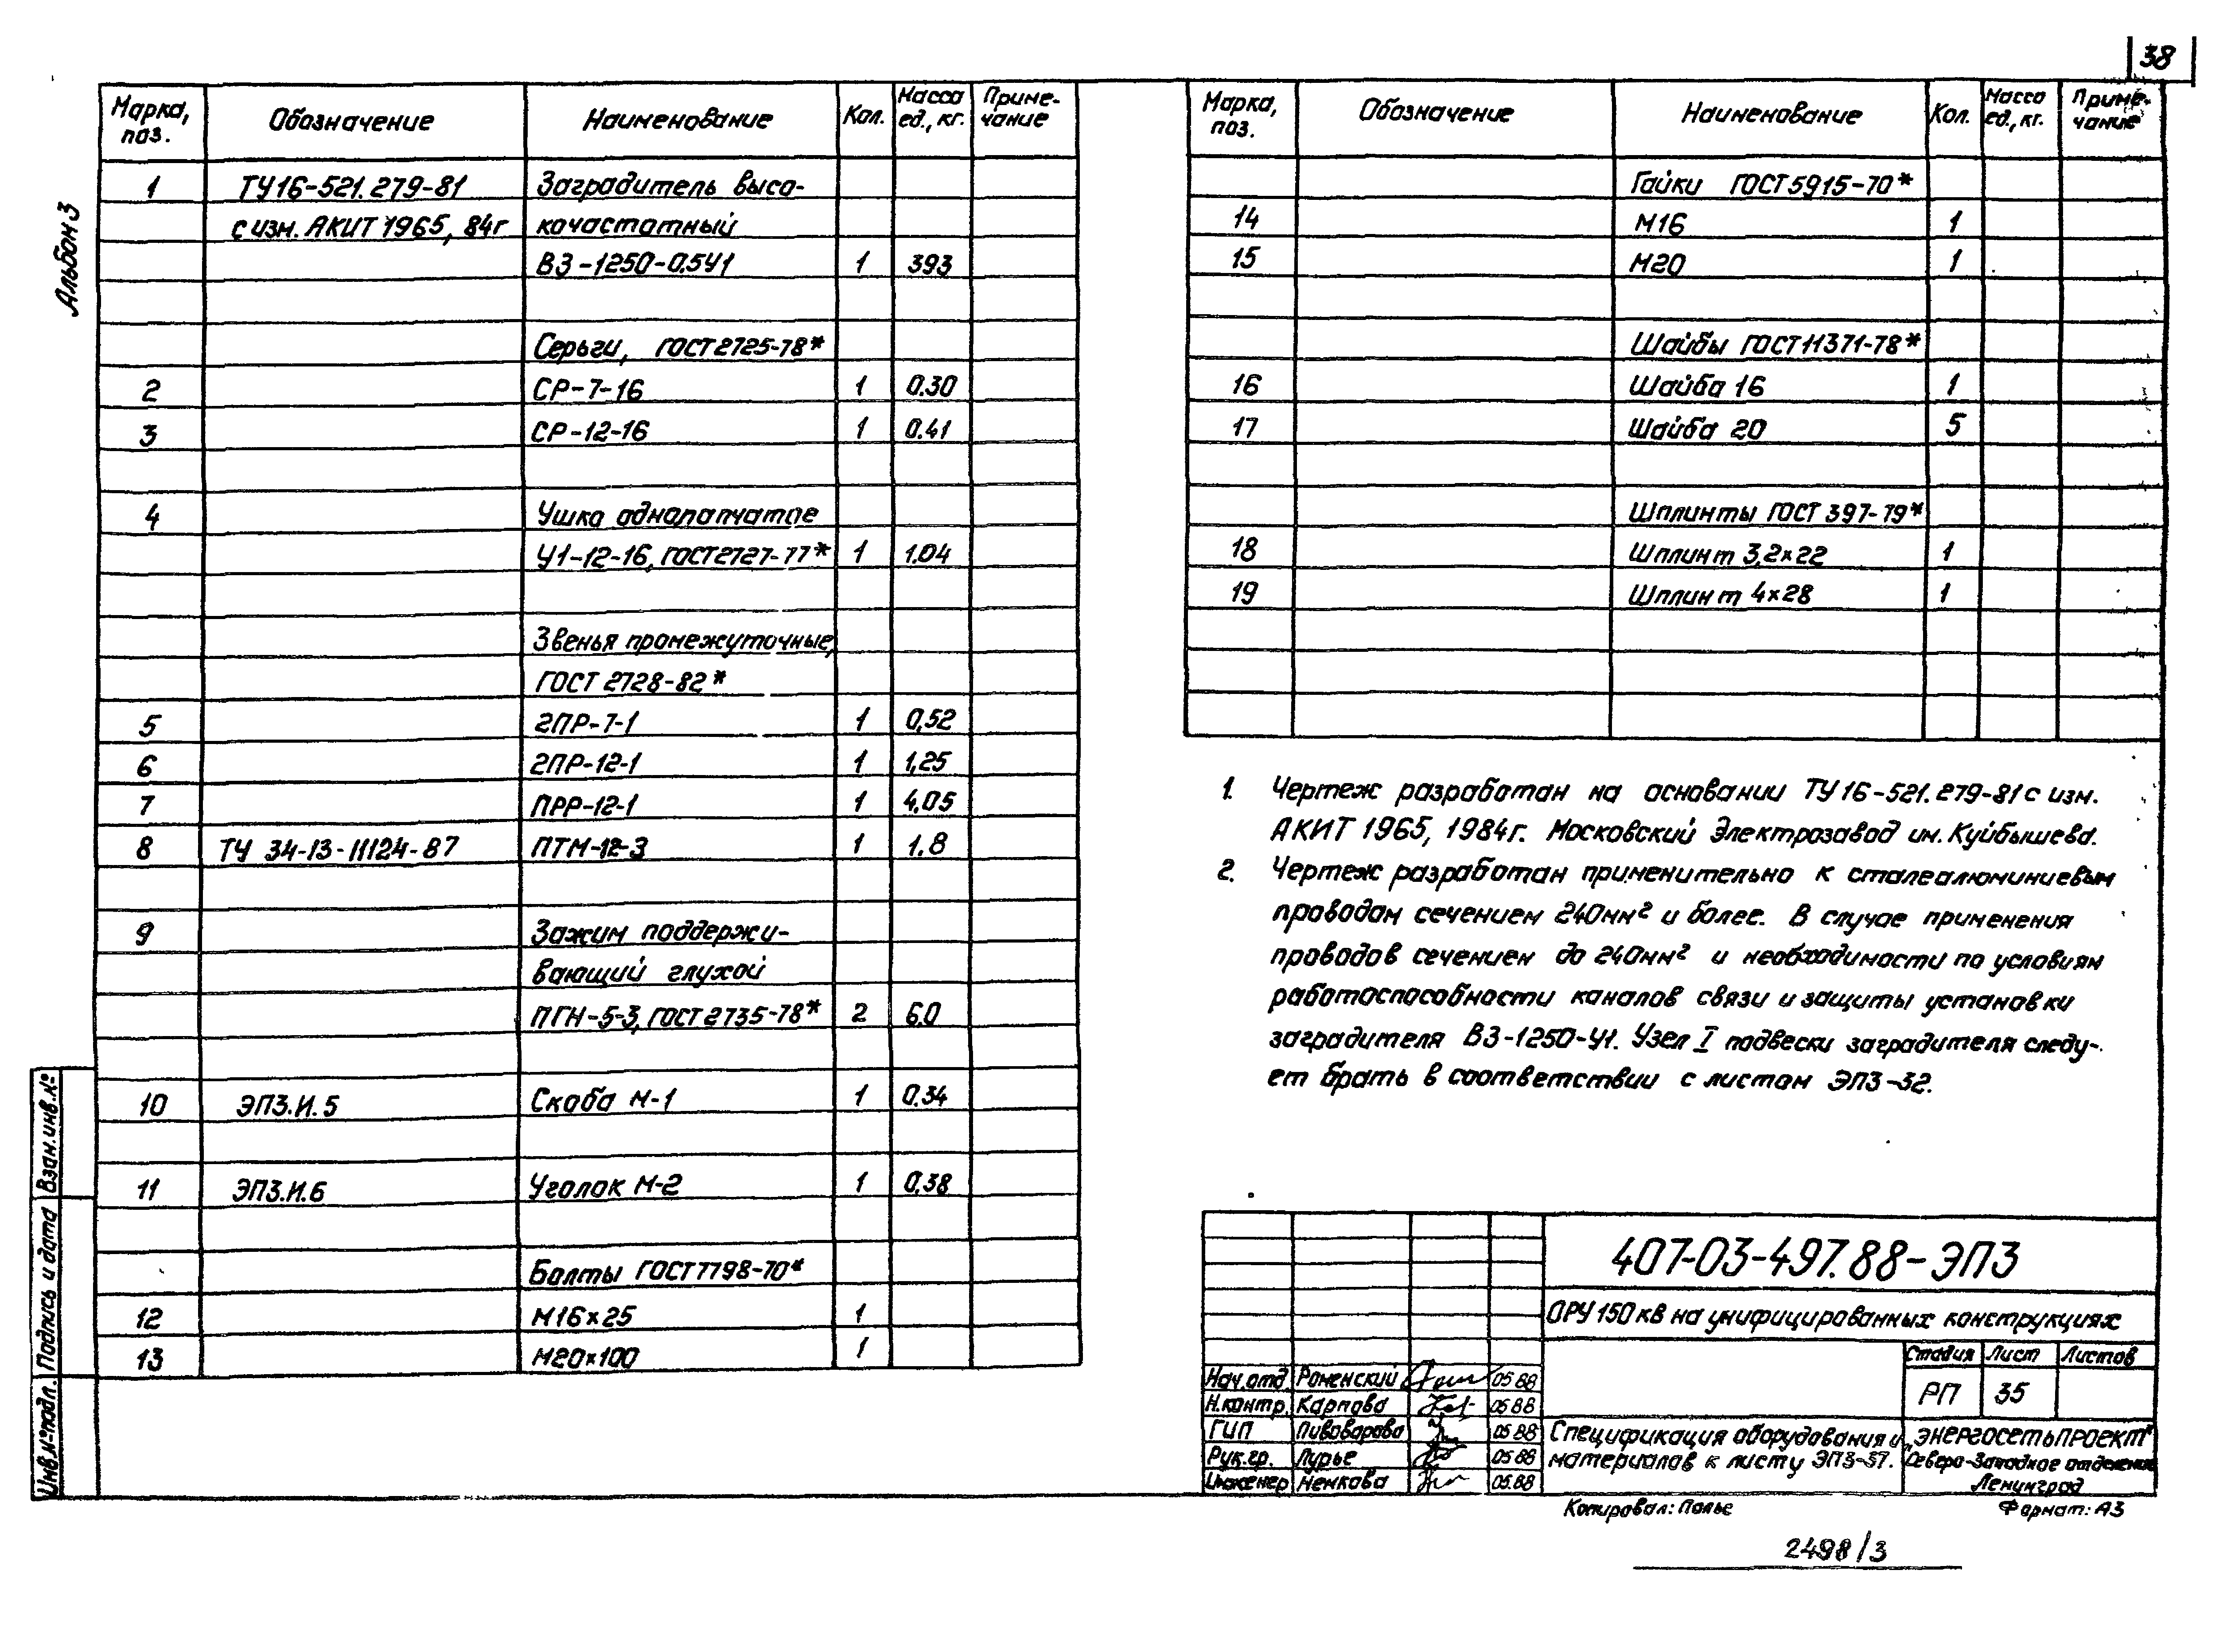 38
Альбом 3
Марка, поз. Обозначение Наименование Кол. Масса ед., кг. Приме-чание
1 ТУ16-521.279-81 Заградитель высо-
с изм. АКИТ 1965, 84г кочастотный
ВЗ-1250-0.5У1 1 393
Серьги, ГОСТ 2725-78*
2 СР-7-16 1 0.30
3 СР-12-16 1 0.41
4 Ушко однолапчатое
У1-12-16, ГОСТ2727-77* 1 1.04
Звенья промежуточные,
ГОСТ 2728-82*
5 2ПР-7-1 1 0,52
6 2ПР-12-1 1 1,25
7 ПРР-12-1 1 4.05
8 ТУ 34-13-11124-87 ПТМ-12-3 1 1.8
9 Зажим поддержи-
вающий глухой
ПГН-5-3, ГОСТ 2735-78* 2 6.0
10 ЭП3.И.5 Скоба М-1 1 0.34
11 ЭП3.И.6 Уголок М-2 1 0.38
Болты ГОСТ 7798-70*
12 М16х25 1
13 М20х100 1
Марка, поз. Обозначение Наименование Кол. Масса ед., кг. Приме-чание
Гайки ГОСТ 5915-70*
14 М16 1
15 М20 1
Шайбы ГОСТ 11371-78*
16 Шайба 16 1
17 Шайба 20 5
Шплинты ГОСТ 397-79*
18 Шплинт 3,2х22 1
19 Шплинт 4х28 1
1. Чертеж разработан на основании ТУ 16-521.279-81 с изм.
АКИТ 1965, 1984г. Московский Электрозавод им. Куйбышева.
2. Чертеж разработан применительно к сталеалюминиевым
проводам сечением 240мм² и более. В случае применения
проводов сечением до 240мм² и необходимости по условиям
работоспособности каналов связи и защиты установки
заградителя ВЗ-1250-У1. Узел I подвески заградителя следу-
ет брать в соответствии с листом ЭП3-32.
407-03-497.88-ЭП3
ОРУ 150 кВ на унифицированных конструкциях
Стадия Лист Листов
РП 35
Нач.отд. Роменский 05.88
Н.контр. Карпова 05.88
ГИП Пивоварова 05.88
Рук.гр. Лурье 05.88
Инженер Ненкова 05.88
Спецификация оборудования и
материалов к листу ЭП3-37.
„ЭНЕРГОСЕТЬПРОЕКТ"
Северо-Западное отделение
Ленинград
Копировал: Полье
Формат: А3
2498/3
Инв.№подл. Подпись и дата Взам.инв.№